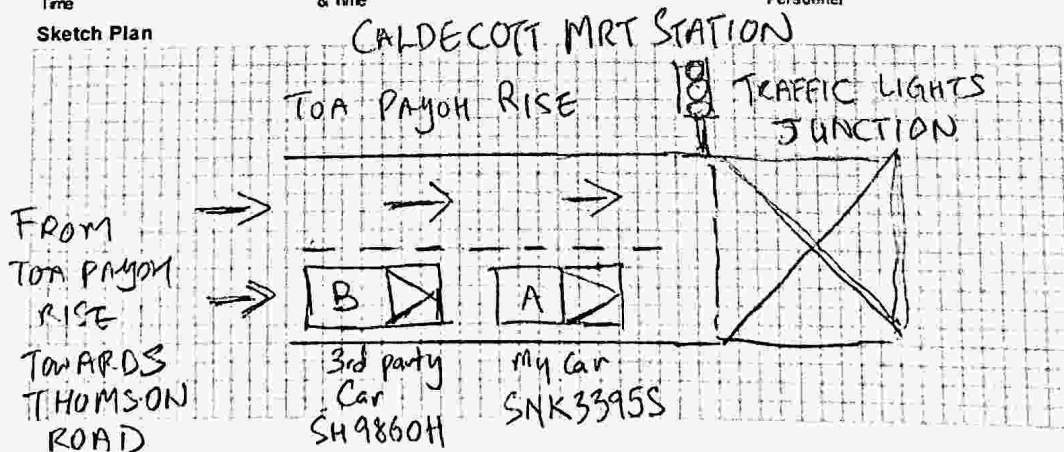 Time
& Time
Personnel
Sketch Plan
CALDECOTT MRT STATION
TOA PAYOH RISE
TRAFFIC LIGHTS
JUNCTION
FROM
TOA PAYOH
RISE
TOWARDS
THOMSON
ROAD
B
A
3rd party
Car
SH9860H
My Car
SNK3395S